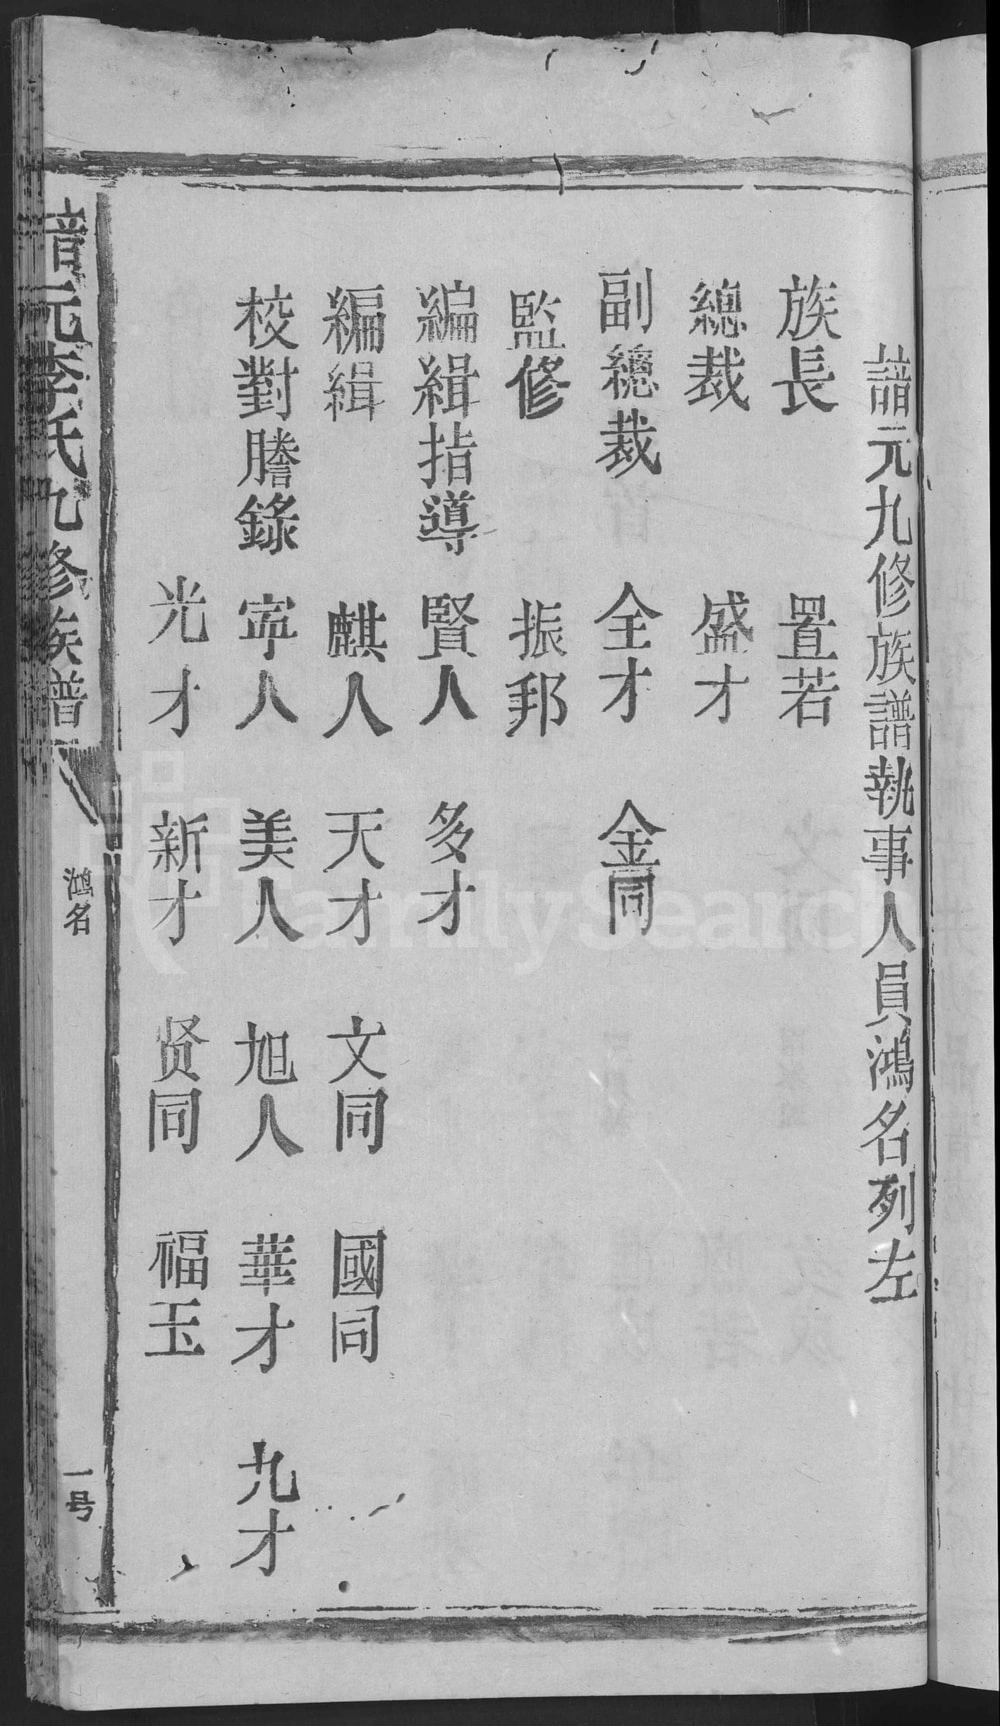 諳元九修族譜執事人員鴻名列左
族長 置若
總裁 盛才
副總裁 全才 金同
監修 振邦
編緝指導 賢人 多才
編緝 麒人 天才 文同 國同
校對謄錄 寜人 美人 旭人 華才 九才
光才 新才 贤同 福玉
諳元李氏九修族譜
鴻名
一号
FamilySearch